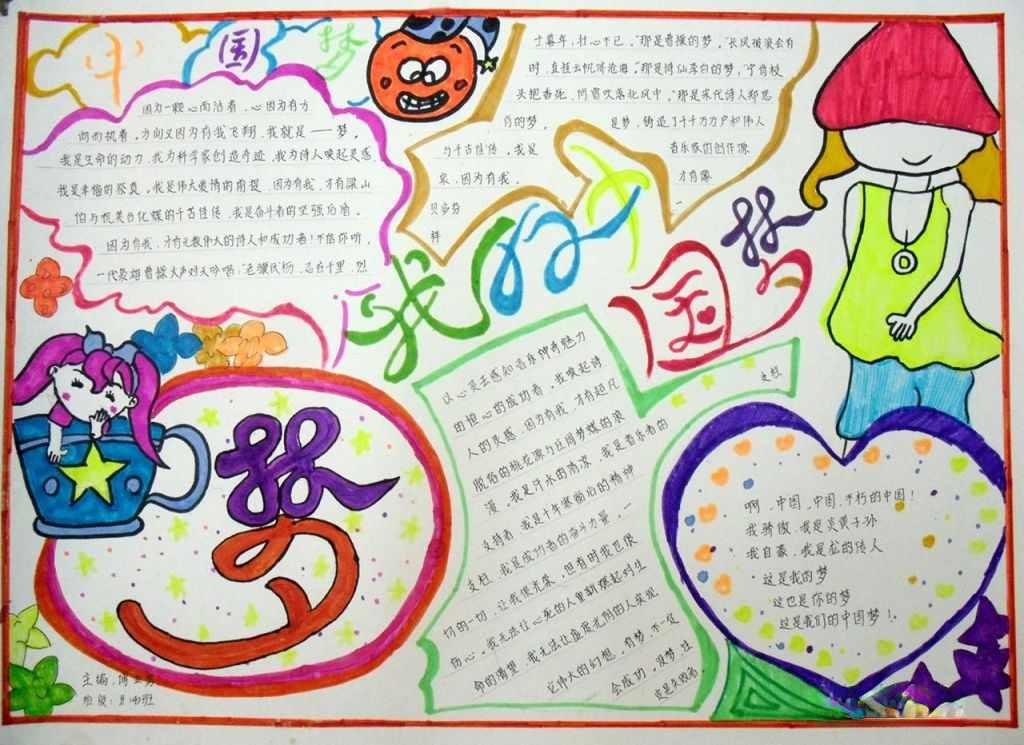 中国梦
因为一颗心而活着,心因为有力
向而执着,方向又因为有我飞翔,我就是——梦。
我是生命的动力,我为科学家创造奇迹,我为诗人唤起灵感,
我是幸福的祭奠,我是伟大爱情的期望,因为有我,才有梁山
伯与祝英台化蝶的千古佳传,我是奋斗者的坚强后盾。
因为有我,才有无数伟大的诗人和成功者!不信你听,
一代枭雄曹操大声对天吟唱:“老骥伏枥,志在千里,烈
士暮年,壮心不已。”那是曹操的梦,“长风破浪会有
时,直挂云帆济沧海。”那是诗仙李白的梦,“宁肯枝
头抱香死,何曾吹落北风中。”那是宋代诗人郑思
肖的梦。
是梦,铸造了千千万万户和伟人
与千古佳传,我是
音乐家的创作源
泉,因为有我,
才有像
贝多芬
一
样
我的中国梦
梦
以心灵去感知音乐神奇魅力
由恒心的成功者,我唤起诗
人的灵感,因为有我,才有超凡
脱俗的桃花源与庄周梦蝶的浪
漫,我是汗水的清凉,我是音乐者的
支持者,我是十年寒窗后的精神
支柱,我是成功者的奋斗力量,一
支柱
切的一切,让我很光荣,但有时我也很
伤心,我无法让心死的人重新燃起对生
命的渴望,我无法让虚度光阴的人实现
它伟大的幻想,有梦,不一定
会成功,没梦,注
定是失败者
啊,中国,中国,不朽的中国!
我骄傲,我是炎黄子孙
我自豪,我是龙的传人
这是我的梦
这也是你的梦
这是我们的中国梦!
主编:傅
班级:五(4)班